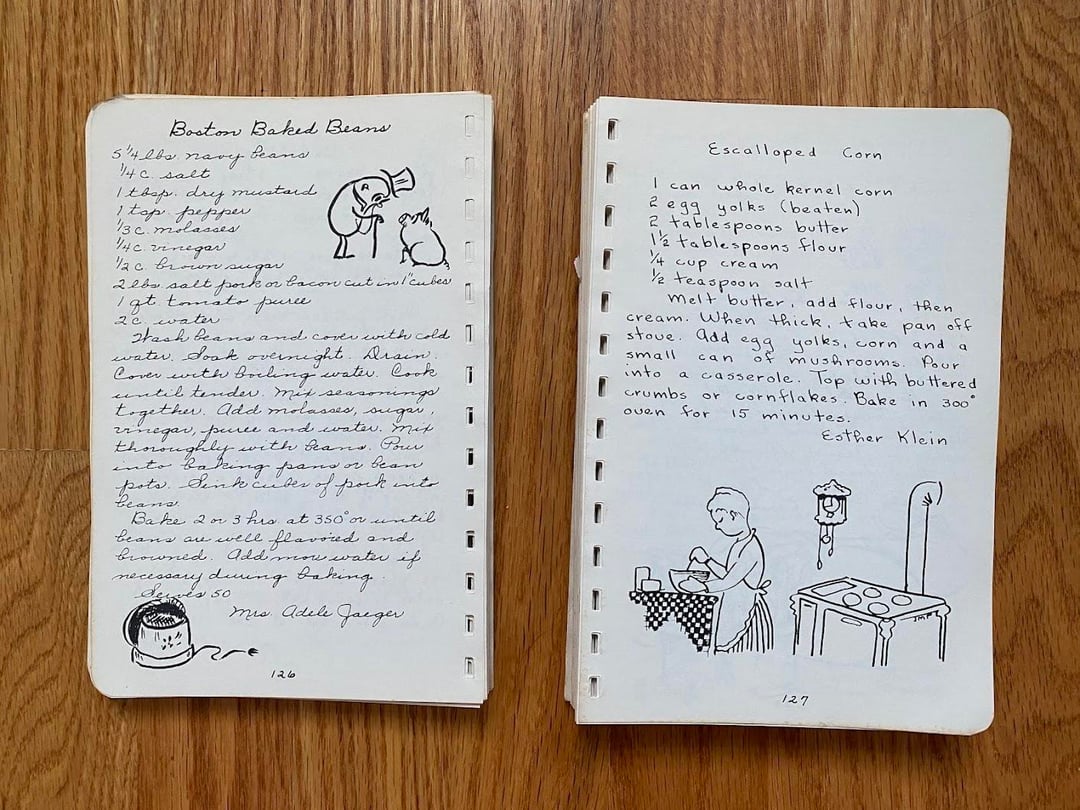 Boston Baked Beans
5 1/4 lbs. navy beans
1/4 c. salt
1 tbsp. dry mustard
1 tsp. pepper
1/3 c. molasses
1/4 c. vinegar
1/2 c. brown sugar
2 lbs. salt pork or bacon cut in 1" cubes
1 qt tomato puree
2 c. water
Wash beans and cover with cold
water. Soak overnight. Drain.
Cover with boiling water. Cook
until tender. Mix seasonings
together. Add molasses, sugar,
vinegar, puree and water. Mix
thoroughly with beans. Pour
into baking pans or bean
pots. Sink cubes of pork into
beans.
Bake 2 or 3 hrs at 350° or until
beans are well flavored and
browned. Add more water if
necessary during baking.
Serves 50
Mrs. Adele Jaeger
126
Escalloped Corn
1 can whole kernel corn
2 egg yolks (beaten)
2 tablespoons butter
1 1/2 tablespoons flour
1/4 cup cream
1/2 teaspoon salt
Melt butter, add flour, then
cream. When thick, take pan off
stove. Add egg yolks, corn and a
small can of mushrooms. Pour
into a casserole. Top with buttered
crumbs or cornflakes. Bake in 300°
oven for 15 minutes.
Esther Klein
JMF
127